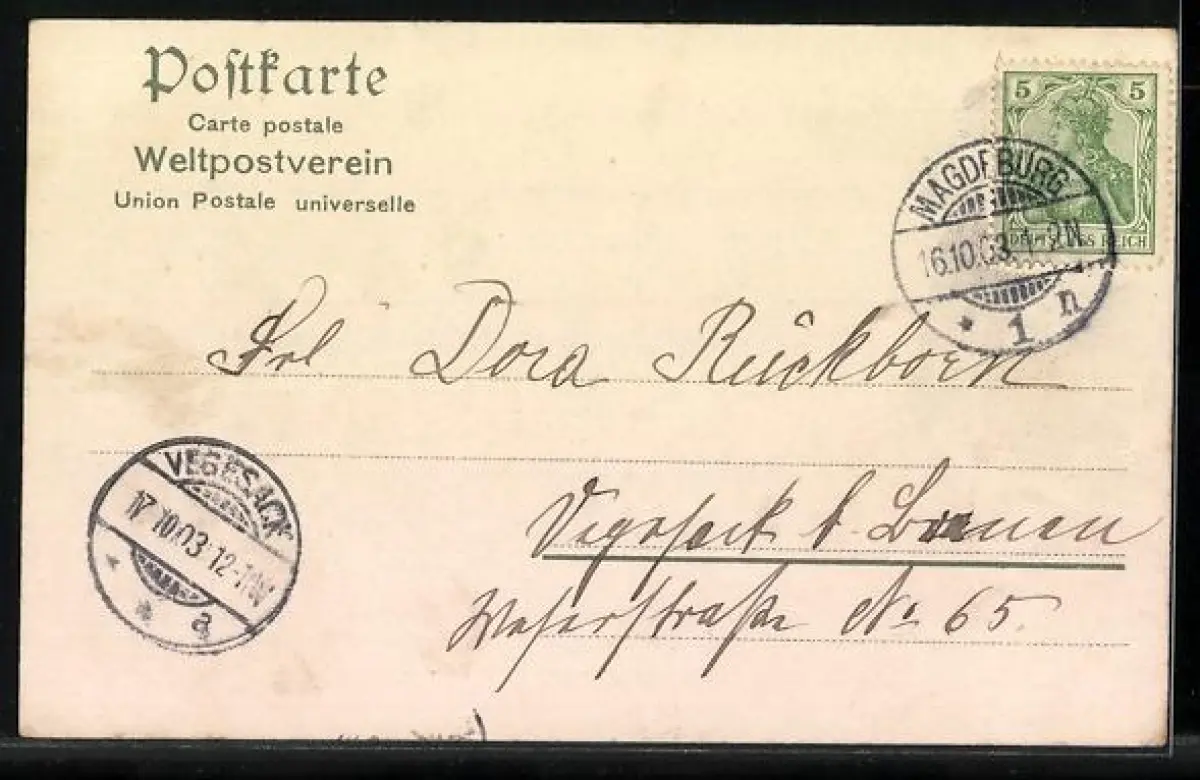 Postkarte
Carte postale
Weltpostverein
Union Postale universelle
5 5
DEUTSCHES REICH
MAGDEBURG
16.10.03. 1-2N
* 1 n
Frl Dora Rückborn
VEGESACK
17.10.03. 12-1N
* * a
Vegesack b. Bremen
Weserstraße No 65.